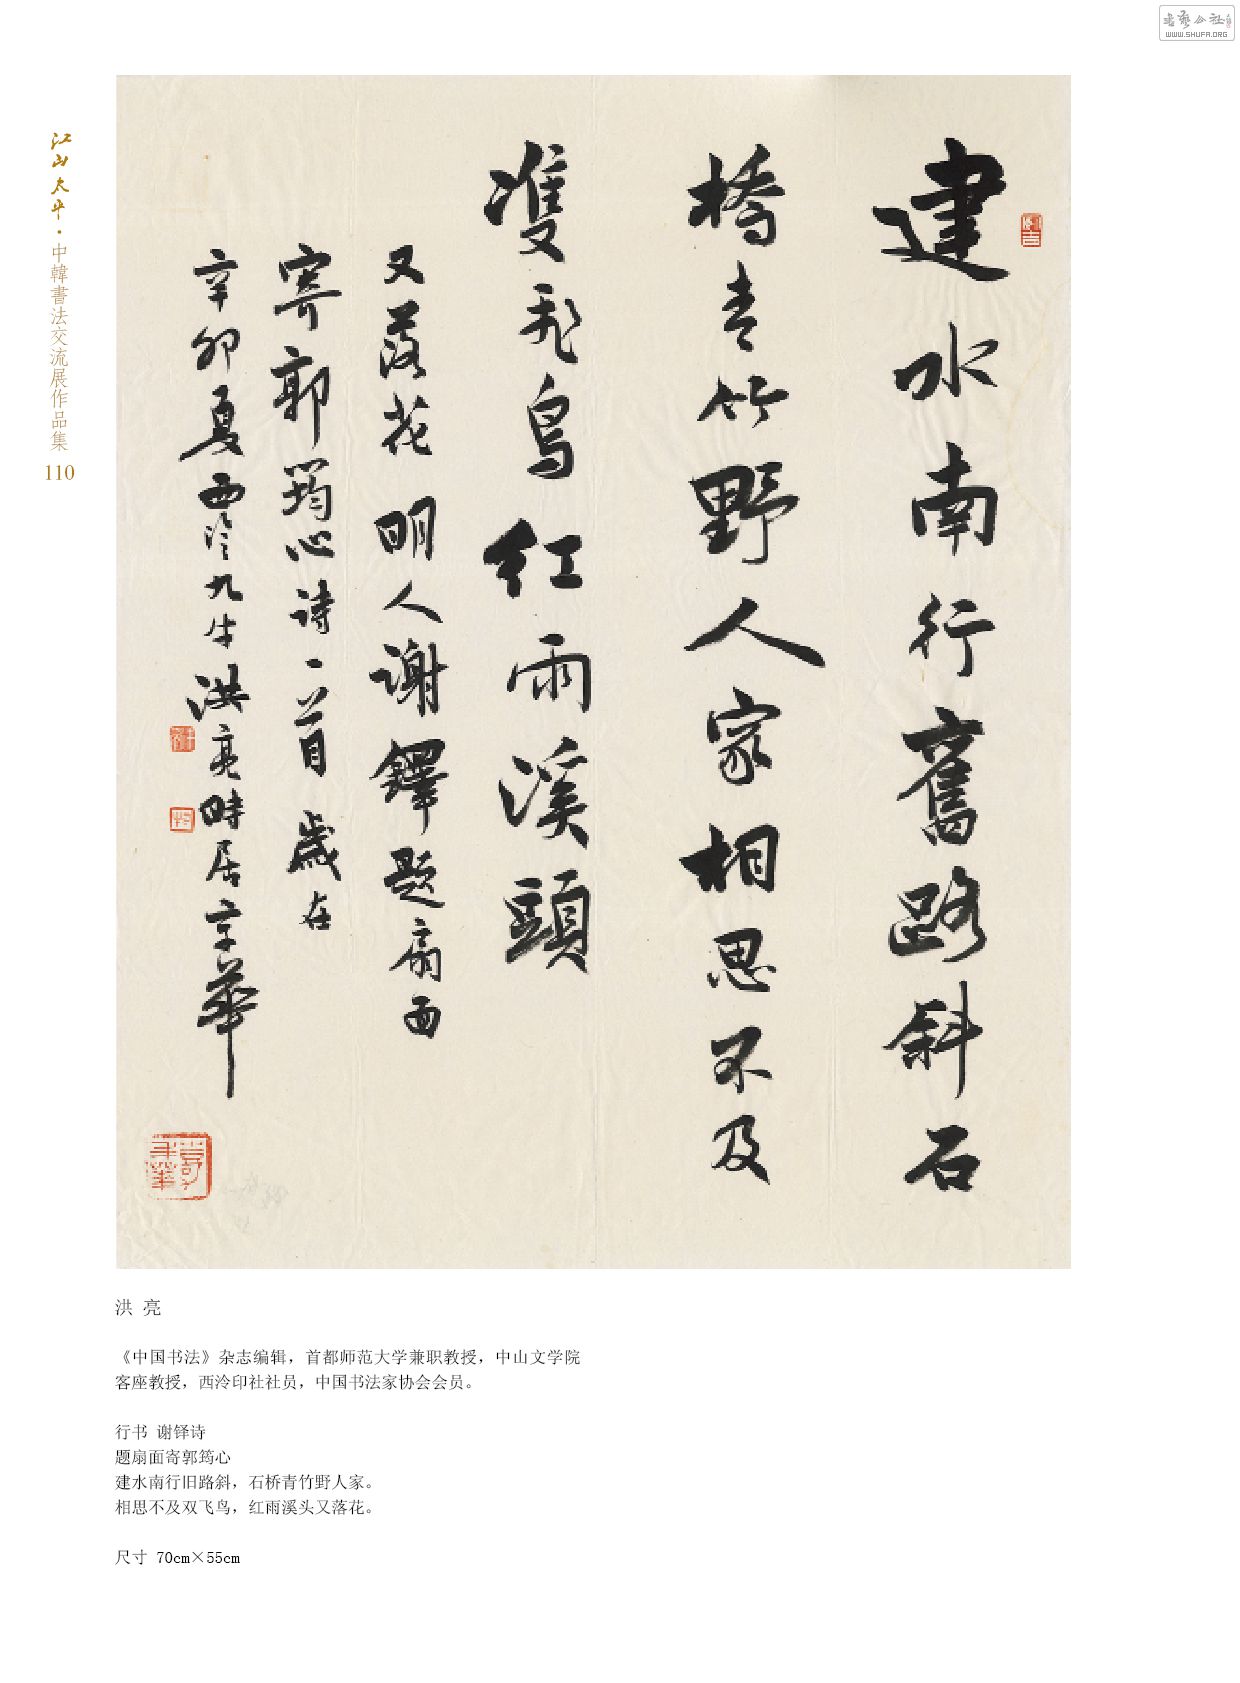 書藝公社
WWW.SHUFA.ORG
江山太平·中韓書法交流展作品集
110
建水南行舊路斜石
橋青竹野人家相思不及
雙飛鳥紅雨溪頭
又落花 明人谢鐸題扇面
寄郭筠心诗一首 歲在
辛卯夏西泠九生洪亮時居京華
洪 亮
《中国书法》杂志编辑，首都师范大学兼职教授，中山文学院
客座教授，西泠印社社员，中国书法家协会会员。
行书 谢铎诗
题扇面寄郭筠心
建水南行旧路斜，石桥青竹野人家。
相思不及双飞鸟，红雨溪头又落花。
尺寸 70cm×55cm